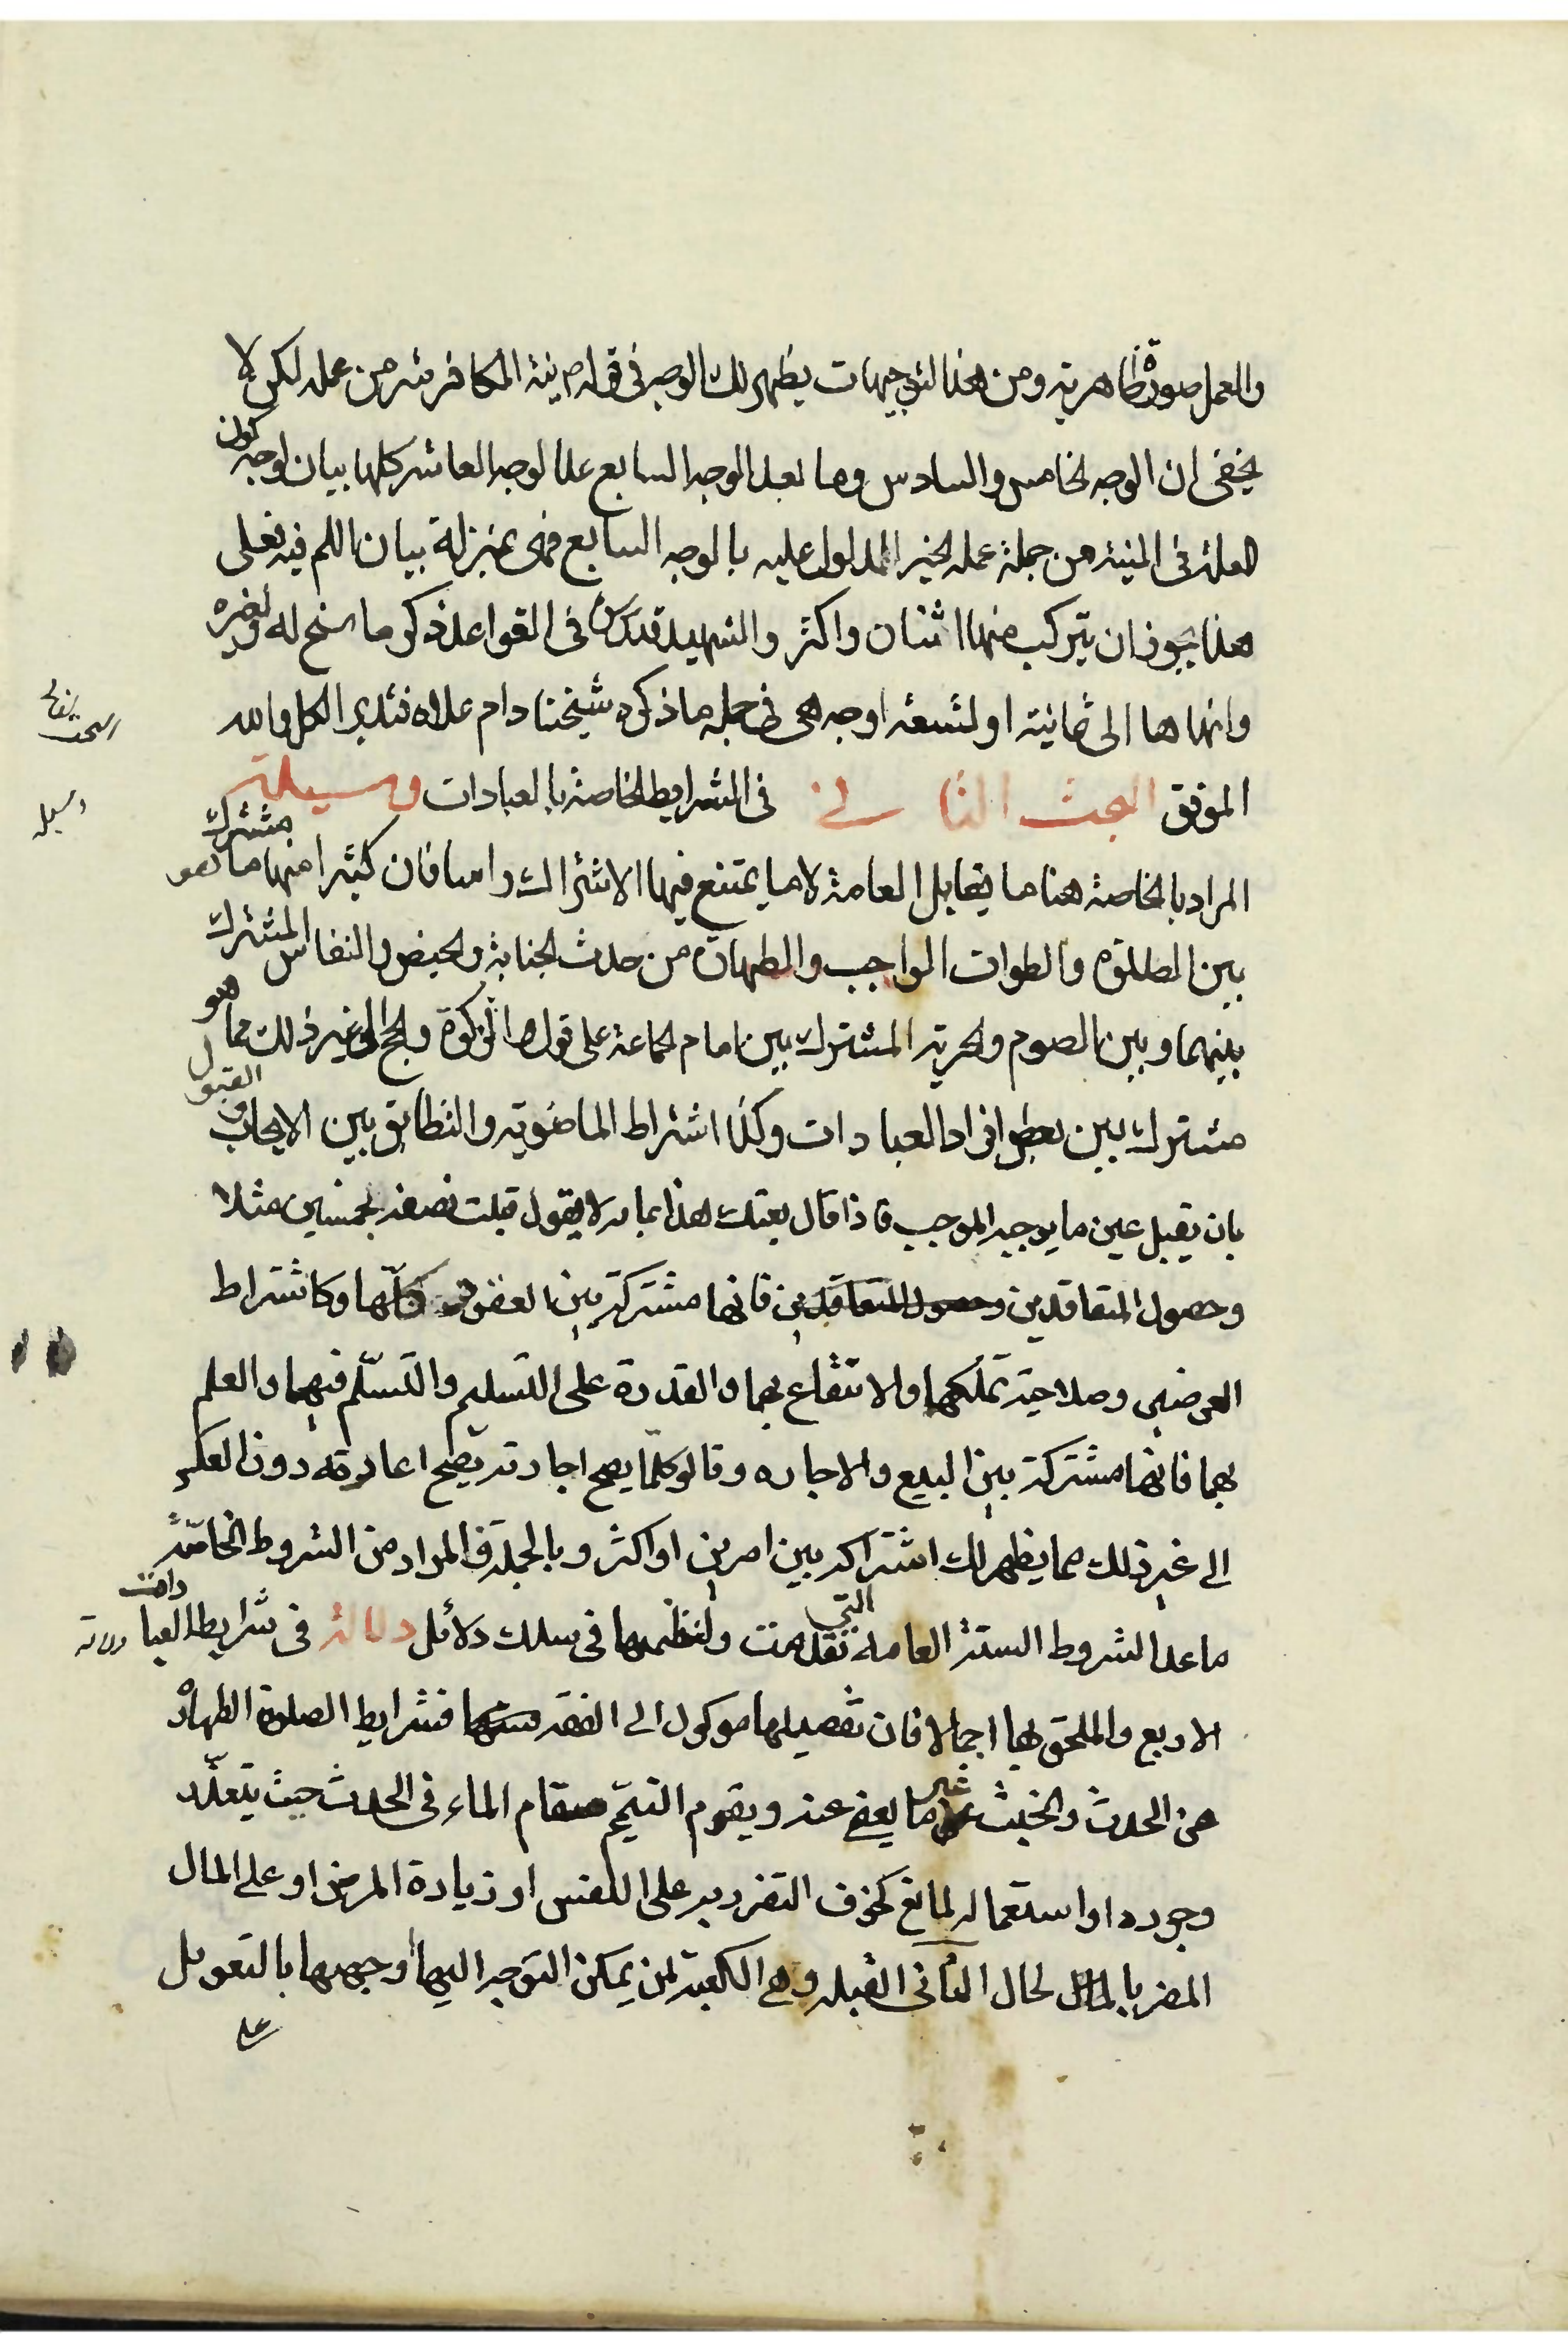 والعمل صورة ظاهرية ومن هذا التوجيهات يظهر لك الوجه فى قوله ص نية الكافر شر من عمله لكن لا
يخفى ان الوجه الخامس والسادس وما بعد الوجه السابع عدا الوجه العاشر كلها بيان لوجه كون
العلة فى النية من جملة عمله الخير المدلول عليه بالوجه السابع فهى بمنزلة بيان اللم فيه فعلى
هذا يجوز ان يتركب منها اثنان واكثر والشهيد قدس فى القواعد ذكر ما سنح له ولغيره
وانهاها الى ثمانية او تسعة اوجه هى فى جملة ما ذكره شيخنا دام علاه فتدبر الكل والله
الموفق البحث الثانى فى الشرايط الخاصة بالعبادات وسيلة
المراد بالخاصة هنا ما يقابل العامة لا ما يمتنع فيها الاشتراك راسا فان كثيرا منها ما هو مشترك
بين الصلوة والطواف الواجب والطهارة من حدث الجنابة والحيض والنفاس المشترك
بينهما وبين الصوم والحرية المشترك بين امام الجماعة على قول والزكوة والحج الى غير ذلك مما هو
مشترك بين بعض افراد العبادات وكذا اشتراط الماضوية والتطابق بين الايجاب والقبول
بان يقبل عين ما يوجبه الموجب فاذا قال بعتك هذا بمائة لا يقول قبلت نصفه بخمسين مثلا
وحصول المتعاقدين فانها مشتركة بين العقود كلها وكاشتراط
العوضين وصلاحية تملكها والانتفاع بهما والقدرة على التسليم والتسلّم فيهما والعلم
بهما فانها مشتركة بين البيع والاجاره وقالو كلما يصح اجارته يصح اعارته دون العكس
الى غير ذلك مما يظهر لك اشتراكه بين امرين او اكثر وبالجملة فالمراد من الشروط الخاصّة
ما عدا الشروط الستة العامة التى تقدمت ولنظمها فى سلك دلائل دلالة فى شرايط العبادات
الاربع والملحق بها اجمالا فان تفصيلها موكول الى الفقه فشرايط الصلوة الطهارة
من الحدث والخبث غير ما يعفى عنه ويقوم التيمّم مقام الماء فى الحدث حيث يتعذّر
وجوده او استعماله لمانع كخوف التضرر به على النفس او زيادة المرض او على المال
المضر بالمال لحال الثانى القبله وهى الكعبة لمن يمكن التوجه اليها او جهتها بالتعويل
على
البحث الثانى
وسيله
دلالة